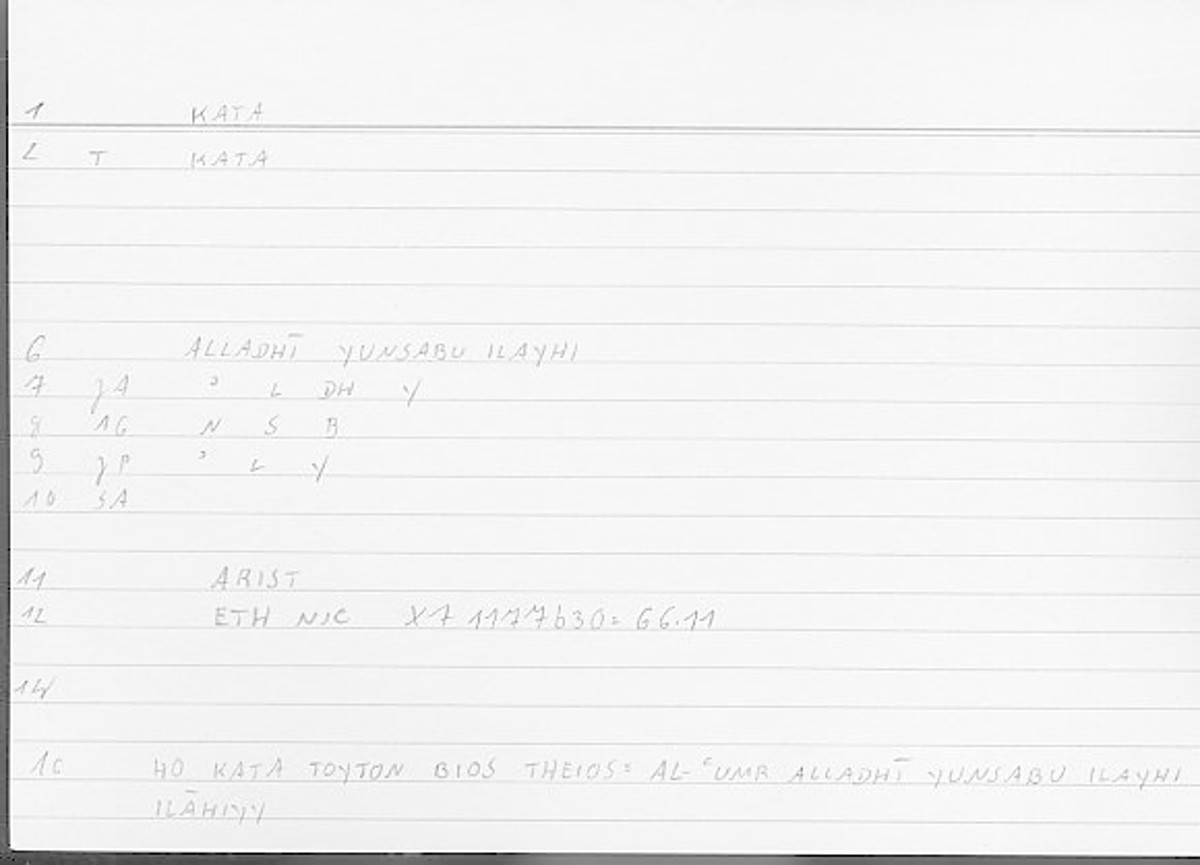 1 KATA
2 T KATA
6 ALLADHĪ YUNSABU ILAYHI
7 ʒA ʾ L DH Y
8 1G N S B
9 ʒP ʾ L Y
10 SA
11 ARIST
12 ETH NIC X7 1177b30= 66.11
14
1G HO KATA TOYTON BIOS THEIOS= AL-ʿUMR ALLADHĪ YUNSABU ILAYHI
ILĀHIYY